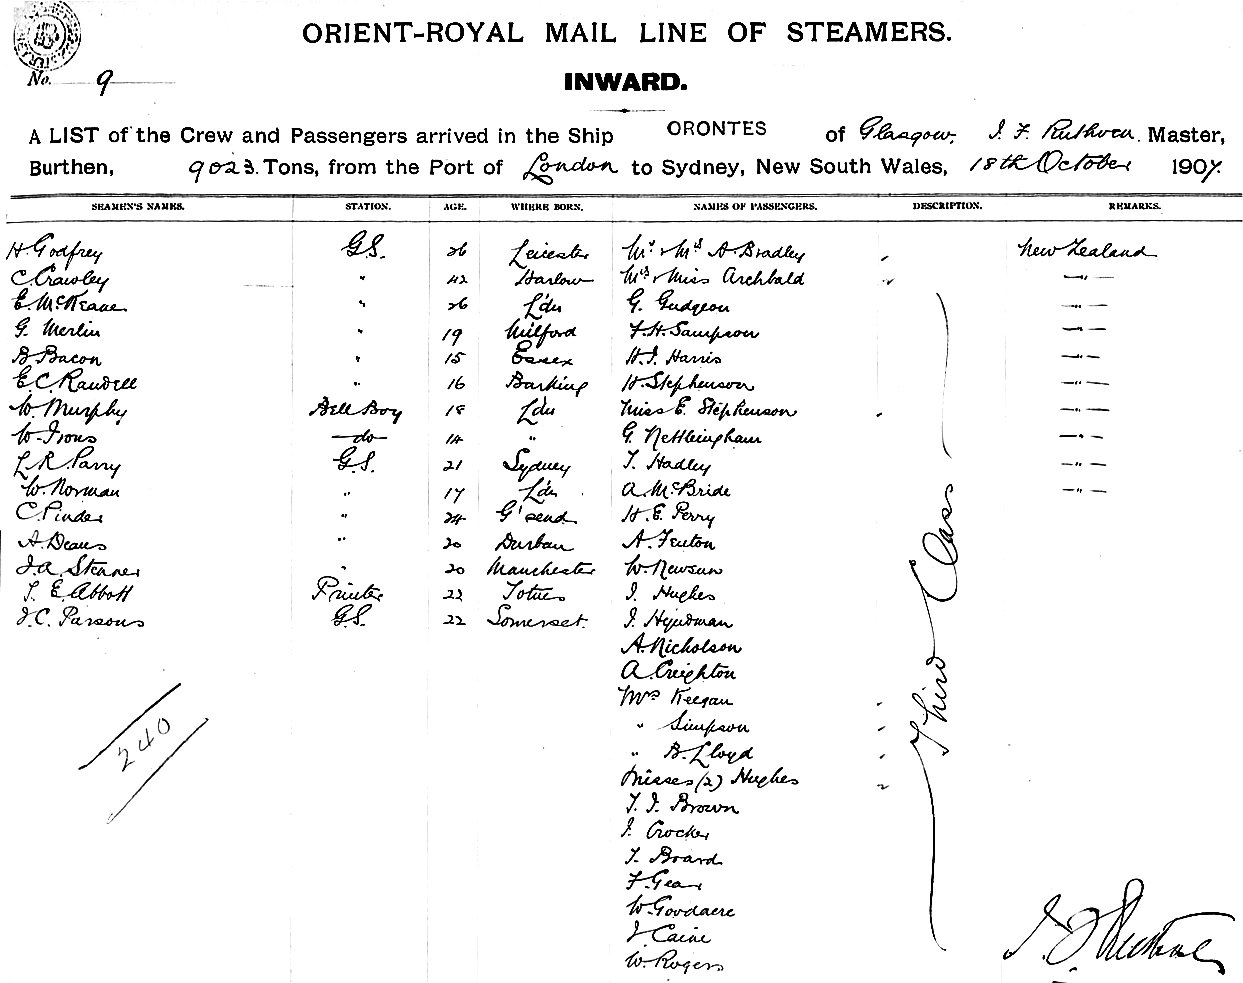 ORIENT-ROYAL MAIL LINE OF STEAMERS.
No. 9
INWARD.
A LIST of the Crew and Passengers arrived in the Ship ORONTES of Glasgow, J. F. Ruthven. Master,
Burthen, 9023 Tons, from the Port of London to Sydney, New South Wales, 18th October 1907.
SEAMEN'S NAMES. STATION. AGE. WHERE BORN. NAMES OF PASSENGERS. DESCRIPTION. REMARKS.
H. Godfrey G.S. 26 Leicester Mr & Mrs A. Bradley New Zealand
C. Crawley " 42 Harlow Mrs & Miss Archbald — " —
E. McKeane " 26 Ldn G. Gudgeon — " —
G. Merlin " 19 Milford F. H. Sampson — " —
B. Bacon " 15 Essex H. J. Harris — " —
E C Randell " 16 Barking H. Stephenson — " —
W. Murphy Bell Boy 18 Ldn Miss E. Stephenson — " —
W. Irons — do — 14 " G. Nettleingham — " —
L. R. Parry G.S. 21 Sydney T. Hadley — " —
W. Norman " 17 Ldn A. McBride — " —
C. Pinder " 24 G'send H. E. Perry
A. Deans " 20 Durban A. Fenton
J. A. Stenner " 20 Manchester W. Newsun
T. E. Abbott Printer 22 Totnes J. Hughes
J. C. Parsons G.S. 22 Somerset. J. Hyndman
A. Nicholson
A. Creighton
Mrs Keegan
" Simpson
" B. Lloyd
Misses (2) Hughes
T. J. Brown
J. Crocker
T. Board
F. Gear
W. Goodacre
J. Caine
W. Rogers
Third Class
240
J. F. Ruthven